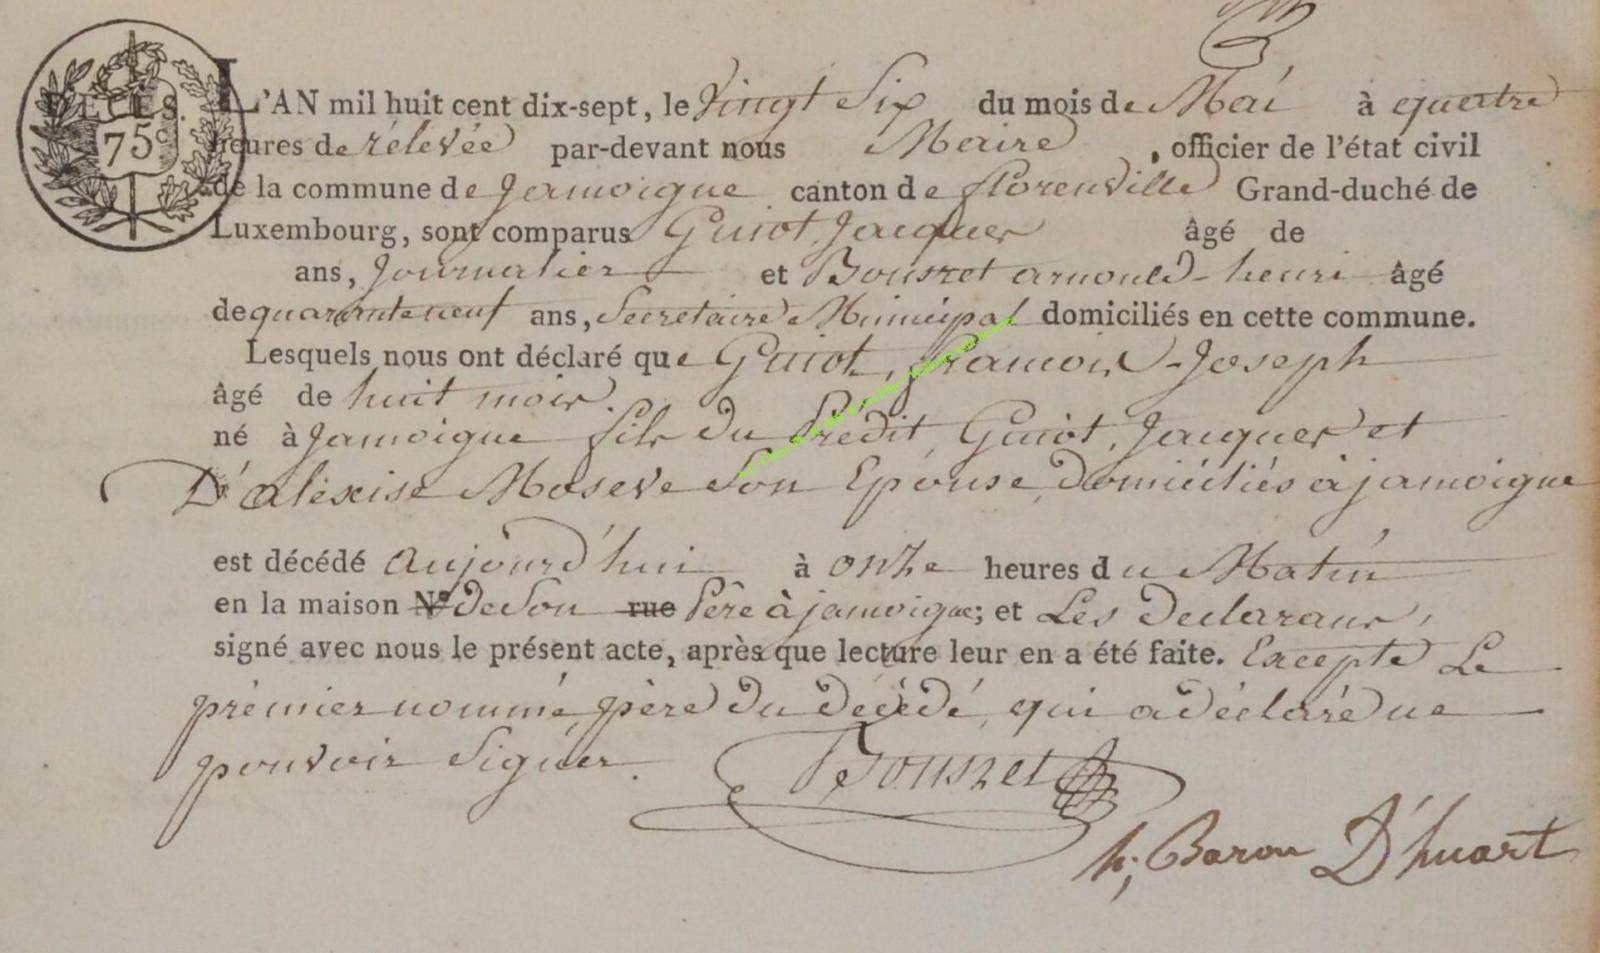 DÉCÈS.
75 c.
L'AN mil huit cent dix-sept, le Vingt Six du mois de Mai à quatre
heures de rélevée par-devant nous Maire, officier de l'état civil
de la commune de Jamoigne canton de florenville Grand-duché de
Luxembourg, sont comparus Guiot, Jacques âgé de
ans, Journalier et Bouszet arnould-henri âgé
de quaranteneuf ans, Secretaire Municipal domiciliés en cette commune.
Lesquels nous ont déclaré que Guiot, françois-Joseph
âgé de huit mois.
né à Jamoigne fils du Prédit Guiot, Jacques et
D'aléxise Maseve Son Epouse, domiciliés à jamoigne
est décédé aujourd'hui à onze heures du Matin
en la maison N.º de Son rue Père à jamoigne; et Les Declarans,
signé avec nous le présent acte, après que lecture leur en a été faite. Excepté Le
prémier nommé, père du décédé, qui a déclaré ne
pouvoir Signer.
Bouszet
h; Baron D'huart